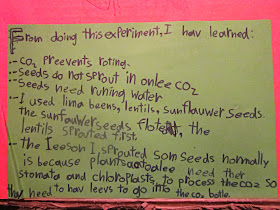 From doing this experiment, I hav learned:
-- CO2 preevents roting.
-- Seeds do not sprout in onlee CO2
-- Seeds need runing water
-- I used lima beens, lentils, sunflauwer seeds.
the sunflauwer seeds flotet, the
lentils sprouted first.
-- the leeson I, sprouted som seeds normally
is because plants need ther
stomata and chloroplasts, to process the CO2 so
thay need to hav leevs to go into the CO2 botle.